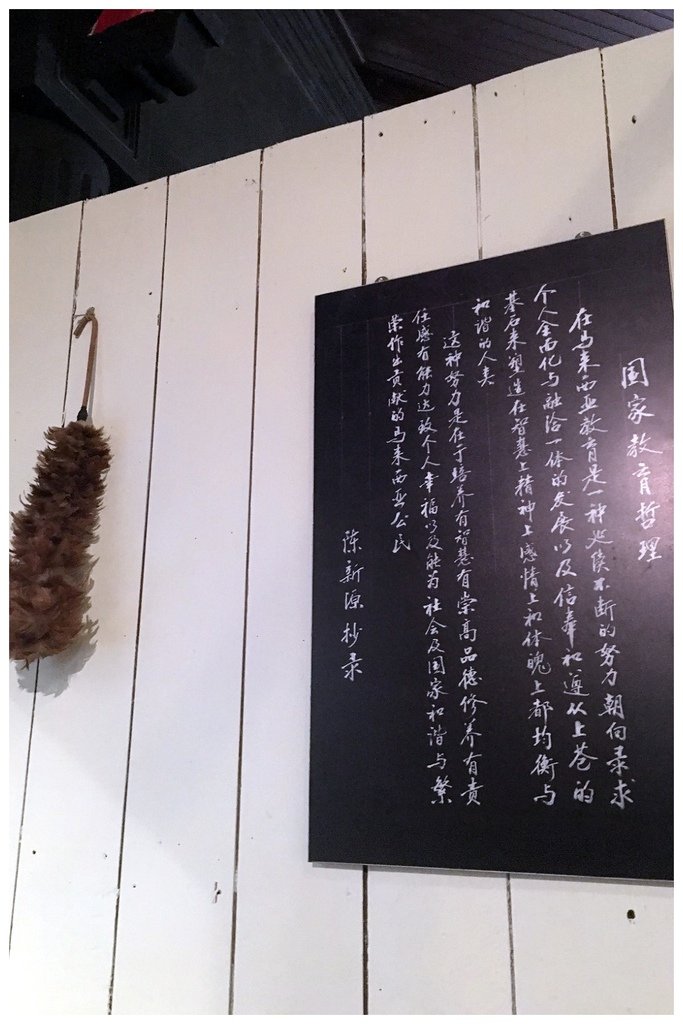 国家教育哲理
在马来西亚教育是一种延续不断的努力朝向寻求
个人全面化与融洽一体的发展以及信奉和遵从上苍的
基石来塑造在智慧上精神上感情上和体魄上都均衡与
和谐的人类
这种努力是在于培养有智慧有崇高品德修养有责
任感有能力达致个人幸福以及能为社会及国家和谐与繁
荣作出贡献的马来西亚公民
陈新源抄录